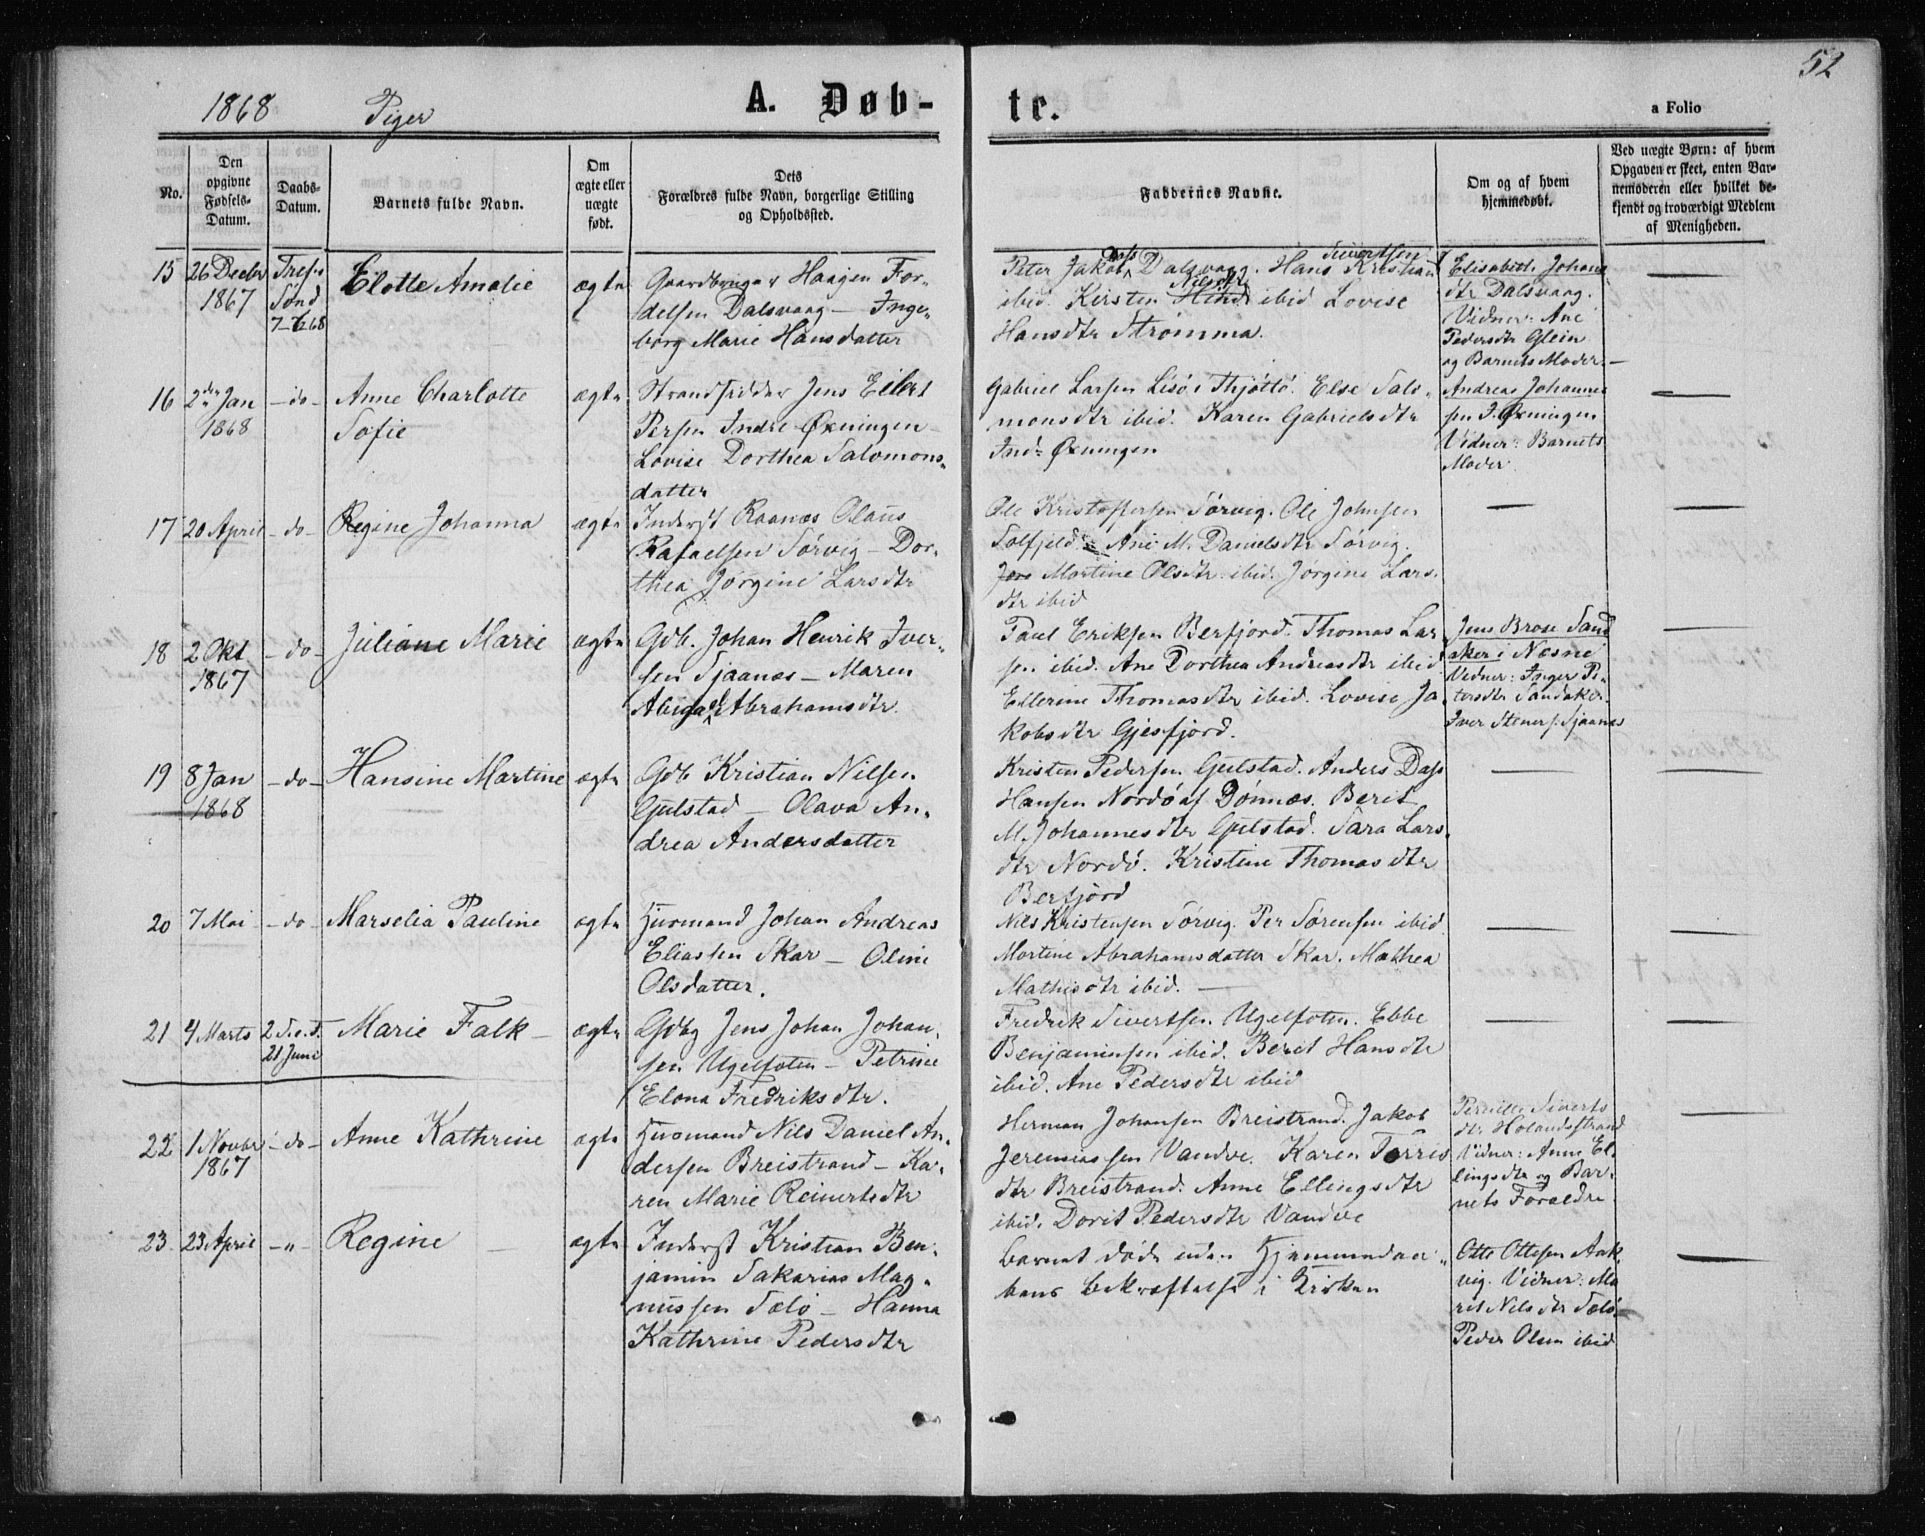 52
1868 Piger
A. Døb-
te.
a Folio
No.
Den
opgivne
Fødsels-
Datum.
Daabs-
Datum.
Barnets fulde Navn.
Om
ægte eller
uægte
født.
Dets
Forældres fulde Navn, borgerlige Stilling
og Opholdssted.
Faddernes Navne.
Om og af hvem
hjemmedøbt.
Ved uægte Børn: af hvem
Opgaven er skeet, enten Bar-
nemoderen eller hvilket be-
kjendt og troværdigt Medlem
af Menigheden.
15
26 Decbr
1867
Tref.
Sønd
7-6-68
Elotte Amalie
ægte
Gaardbruger Haagen For-
delsen Dalsvaag – Inge-
borg Marie Hansdatter
Peter Jakob Dalsvaag. Hans Kristian Sivertsen
ibid. Kirsten Nilsdtr ibid Lovise
Hansdtr Strømma.
Elisabeth Johans
dtr Dalsvaag.
Vidner: Ane
Pedersdtr Glein
og Barnets Moder.
16
2den Jan
1868
- do -
Anne Charlotte
Sofie
ægte
Strandsidder Jens Eilert
Persen Indre Øxningen
Lovise Dorthea Salomons-
datter
Gabriel Larsen Lisö i Thjøttø. Else Salo-
monsdtr ibid. Karen Gabrielsdtr
Ind: Øxningen
Andreas Johannes
sen I. Øxningen
Vidner: Barnets
Moder
17
20 April
- do -
Regine Johanna
ægte
Inderst Raanæs Olaus
Rafaelsen Sørvig – Dor-
thea Jørgine Larsdtr
Ole Kristoffersen Sørvig. Ole Johnsen
Solfjeld. Ane M. Danielsdtr Sørvig.
Martine Olsdtr ibid. Jørgine Lars-
dtr ibid
18
2 Okt
1867
- do -
Juliane Marie
ægte
Gdb. Johan Henrik Iver-
sen Sjaanæs – Maren
Abigael Abrahamsdtr.
Paul Eriksen Berfjord. Thomas Lar
sen ibid. Ane Dorthea Andreasdtr ibid
Ellerine Thomasdtr ibid. Lovise Ja
kobsdtr Gjesfjord.
Jens Brose Sand
aker i Næsne
Vidner: Inger Pe-
tersdtr Sandaker.
Iver Steners. Sjaanæs
19
8 Jan
1868
- do -
Hansine Martine
ægte
Gdb Kristian Nilsen
Gulstad – Olava An-
drea Andersdatter
Kristen Pedersen Gulstad. Anders Dass
Hansen Nordø af Dønnæs. Berit
M. Johannesdtr Gulstad. Sara Lars-
dtr Nordø. Kristine Thomasdtr
Berfjord
20
7 Mai
- do -
Marselia Pauline
ægte
Husmand Johan Andreas
Eliassen Skar – Oline
Olsdatter.
Nils Kristensen Sørvig. Per Sørensen ibid.
Martine Abrahamsdatter Skar. Mathea
Mathisdtr ibid.
21
4 Marts
2 S. e. T.
21 Juni
Marie Falk
ægte
Gdbg Jens Johan Johan-
sen Ugelfoten – Petrine
Elona Fredriksdtr.
Fredrik Sivertsen Ugelfoten. Ebbe
Benjaminsen ibid. Berit Hansdtr
ibid. Ane Pedersdtr ibid
22
1 Novbr
1867
- do -
Anne Kathrine
ægte
Husmand Nils Daniel An-
dersen Breistrand – Ka-
ren Marie Reinertsdtr
Herman Johansen Breistrand. Jakob
Jeremiassen Vandve. Karen Torris
dtr Breistrand. Anne Ellingsdtr
ibid. Dorit Pedersdtr Vandve
Pernille Siverts
dtr Holandsstrand
Vidner: Anne El-
lingsdtr og Bar-
nets Forældre
23.
23 April
- " -
Regine
ægte
Inderst Kristian Ben-
jamin Sakarias Mag-
nussen Sælø – Hanna
Kathrine Pedersdtr
barnet døde uden Hjemmedaa-
bens bekræftelse i Kirken
Otto Ottesen Aak
vig. Vidner: Ma
rit Nilsdtr Sælø
Peder Olsen ibid